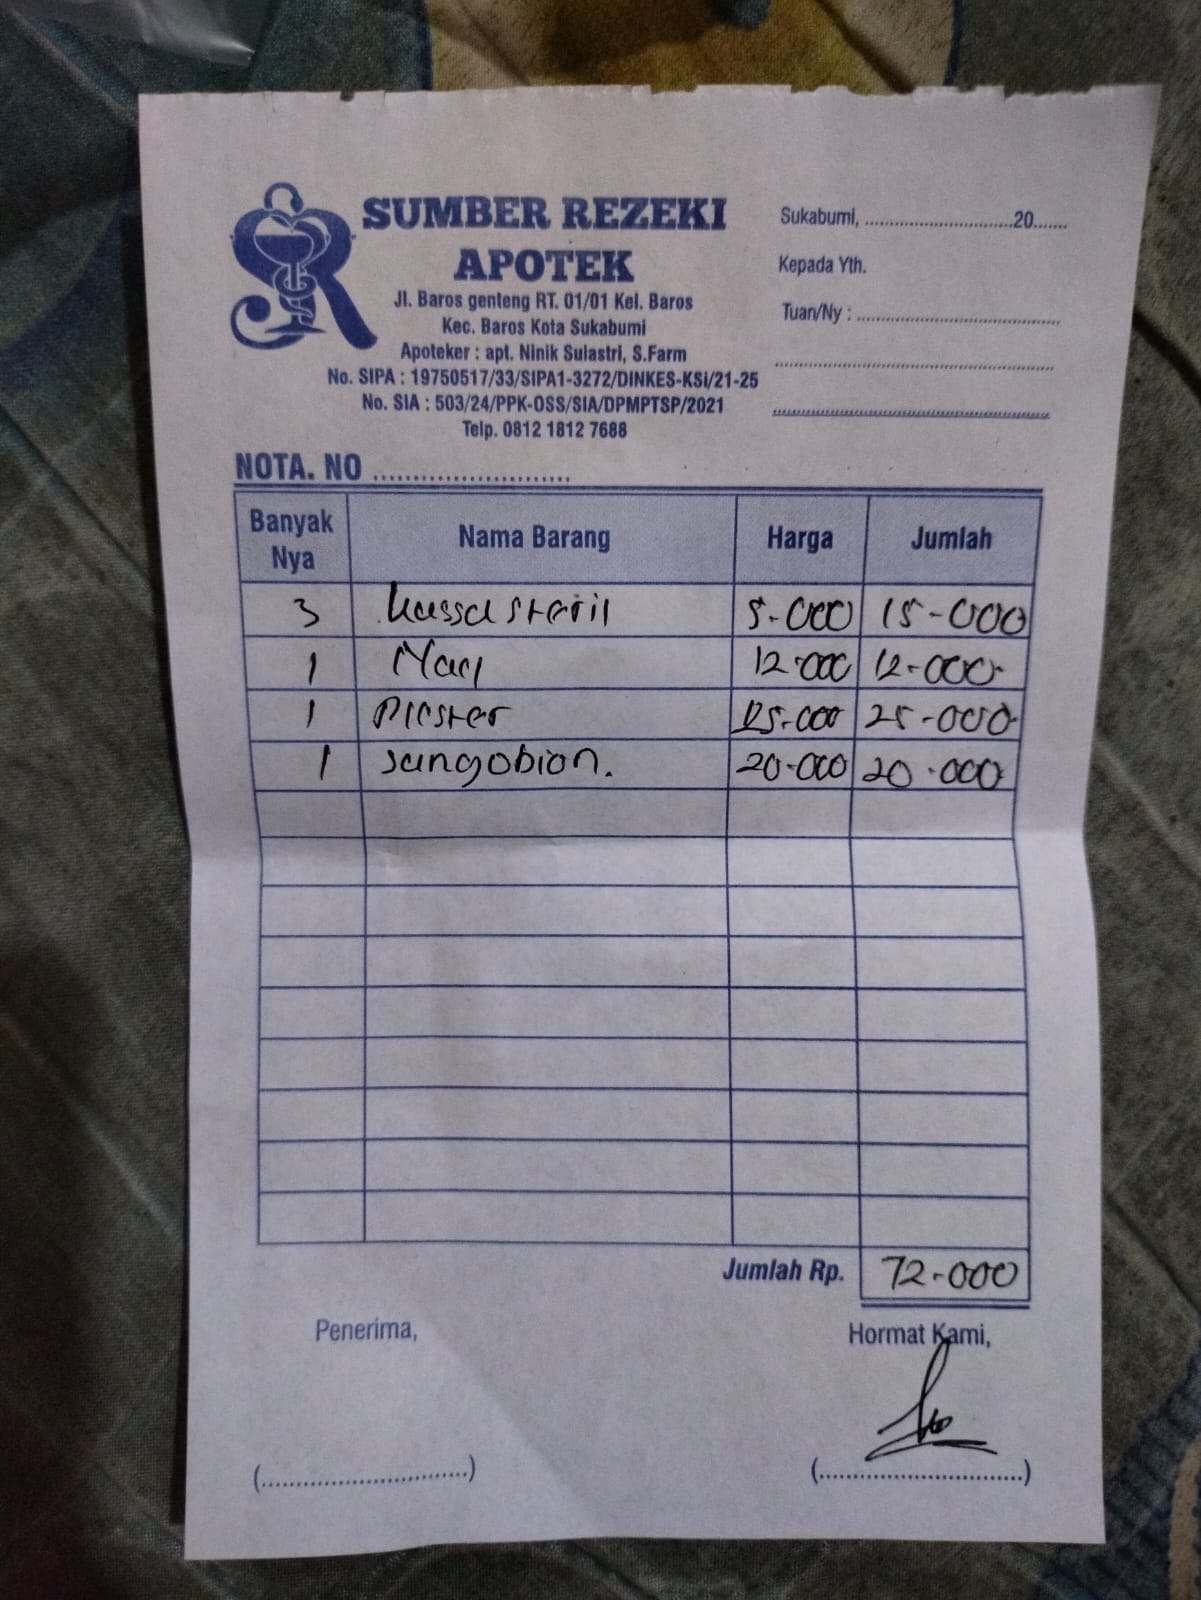 SUMBER REZEKI
APOTEK
Jl. Baros genteng RT. 01/01 Kel. Baros
Kec. Baros Kota Sukabumi
Apoteker : apt. Ninik Sulastri, S.Farm
No. SIPA : 19750517/33/SIPA1-3272/DINKES-KSi/21-25
No. SIA : 503/24/PPK-OSS/SIA/DPMPTSP/2021
Telp. 0812 1812 7688
Sukabumi, ..............................20.......
Kepada Yth.
Tuan/Ny : ..........................................
NOTA. NO ........................
Banyak Nya Nama Barang Harga Jumlah
3 kassa steril 5.000 15-000
1 12.000 12-000
1 Plester 25.000 25-000
1 sangobion. 20.000 20.000
Jumlah Rp. 72-000
Penerima, Hormat Kami,
(..............................) (..............................)